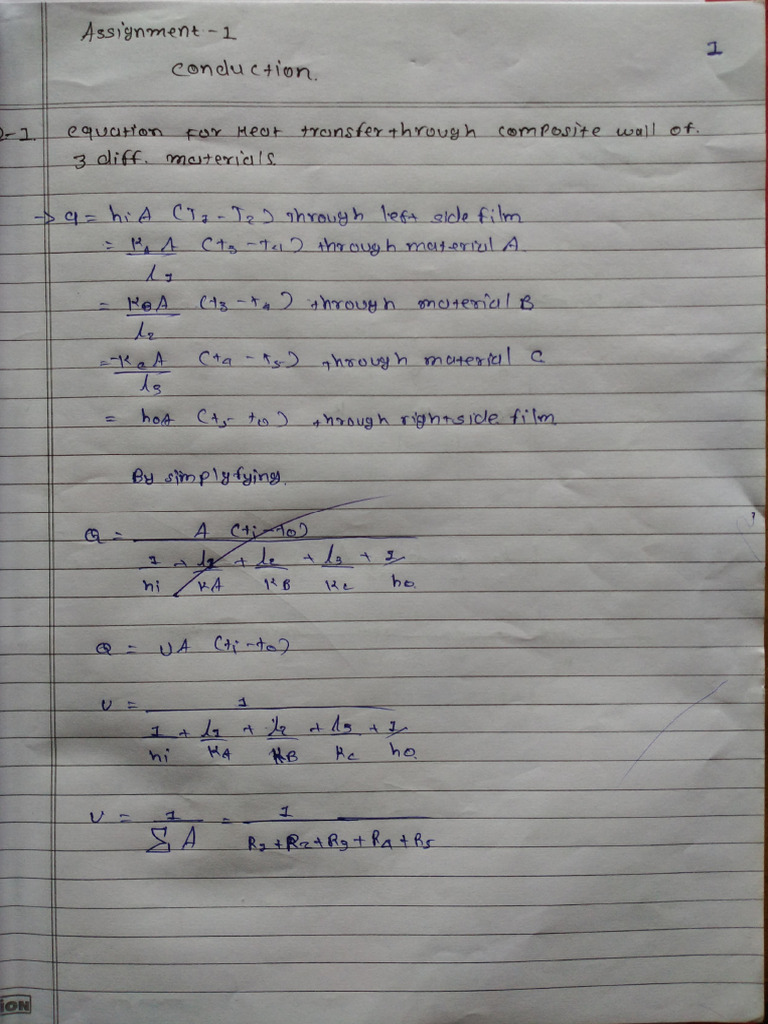 Assignment - 1
1
Conduction.
Q-1. equation for Heat transfer through composite wall of.
3 diff. materials.
→ q = hi A (T1 - T2) through left side film
= KA A / l1 (t3 - t4) through material A.
= KBA / l2 (t3 - t4) through material B
= -Kc A / l3 (t4 - t5) through material C
= hoA (t5 - to) through rightside film
By simplyfying.
Q = A (ti - to) / 1/hi + l1/KA + l2/KB + l3/Kc + 1/ho.
Q = UA (ti - to)
U = 1 / 1/hi + l1/KA + l2/KB + l3/Kc + 1/ho.
U = 1 / Σ A = 1 / R1 + R2 + R3 + R4 + R5
ION